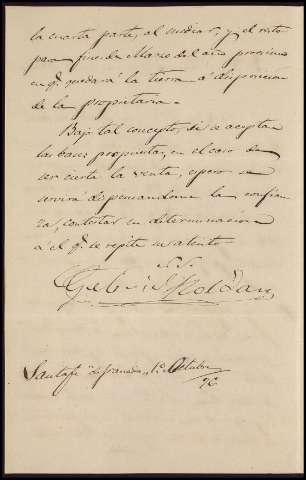 la cuarta parte, al mediar, y el resto
para fines de Marzo del año proximo
en qe quedará la tierra a disposicion
de la propietaria.
Bajo tal concepto, si se aceptan
las bases propuestas, en el caso de
ser cierta la venta, espero se
servirá dispensandome la confian
za, contestar su determinacion
a el qe se repite su atento
S.S.
Gabriel Roldan
Santafé de Granada, 1º Octubre
/92